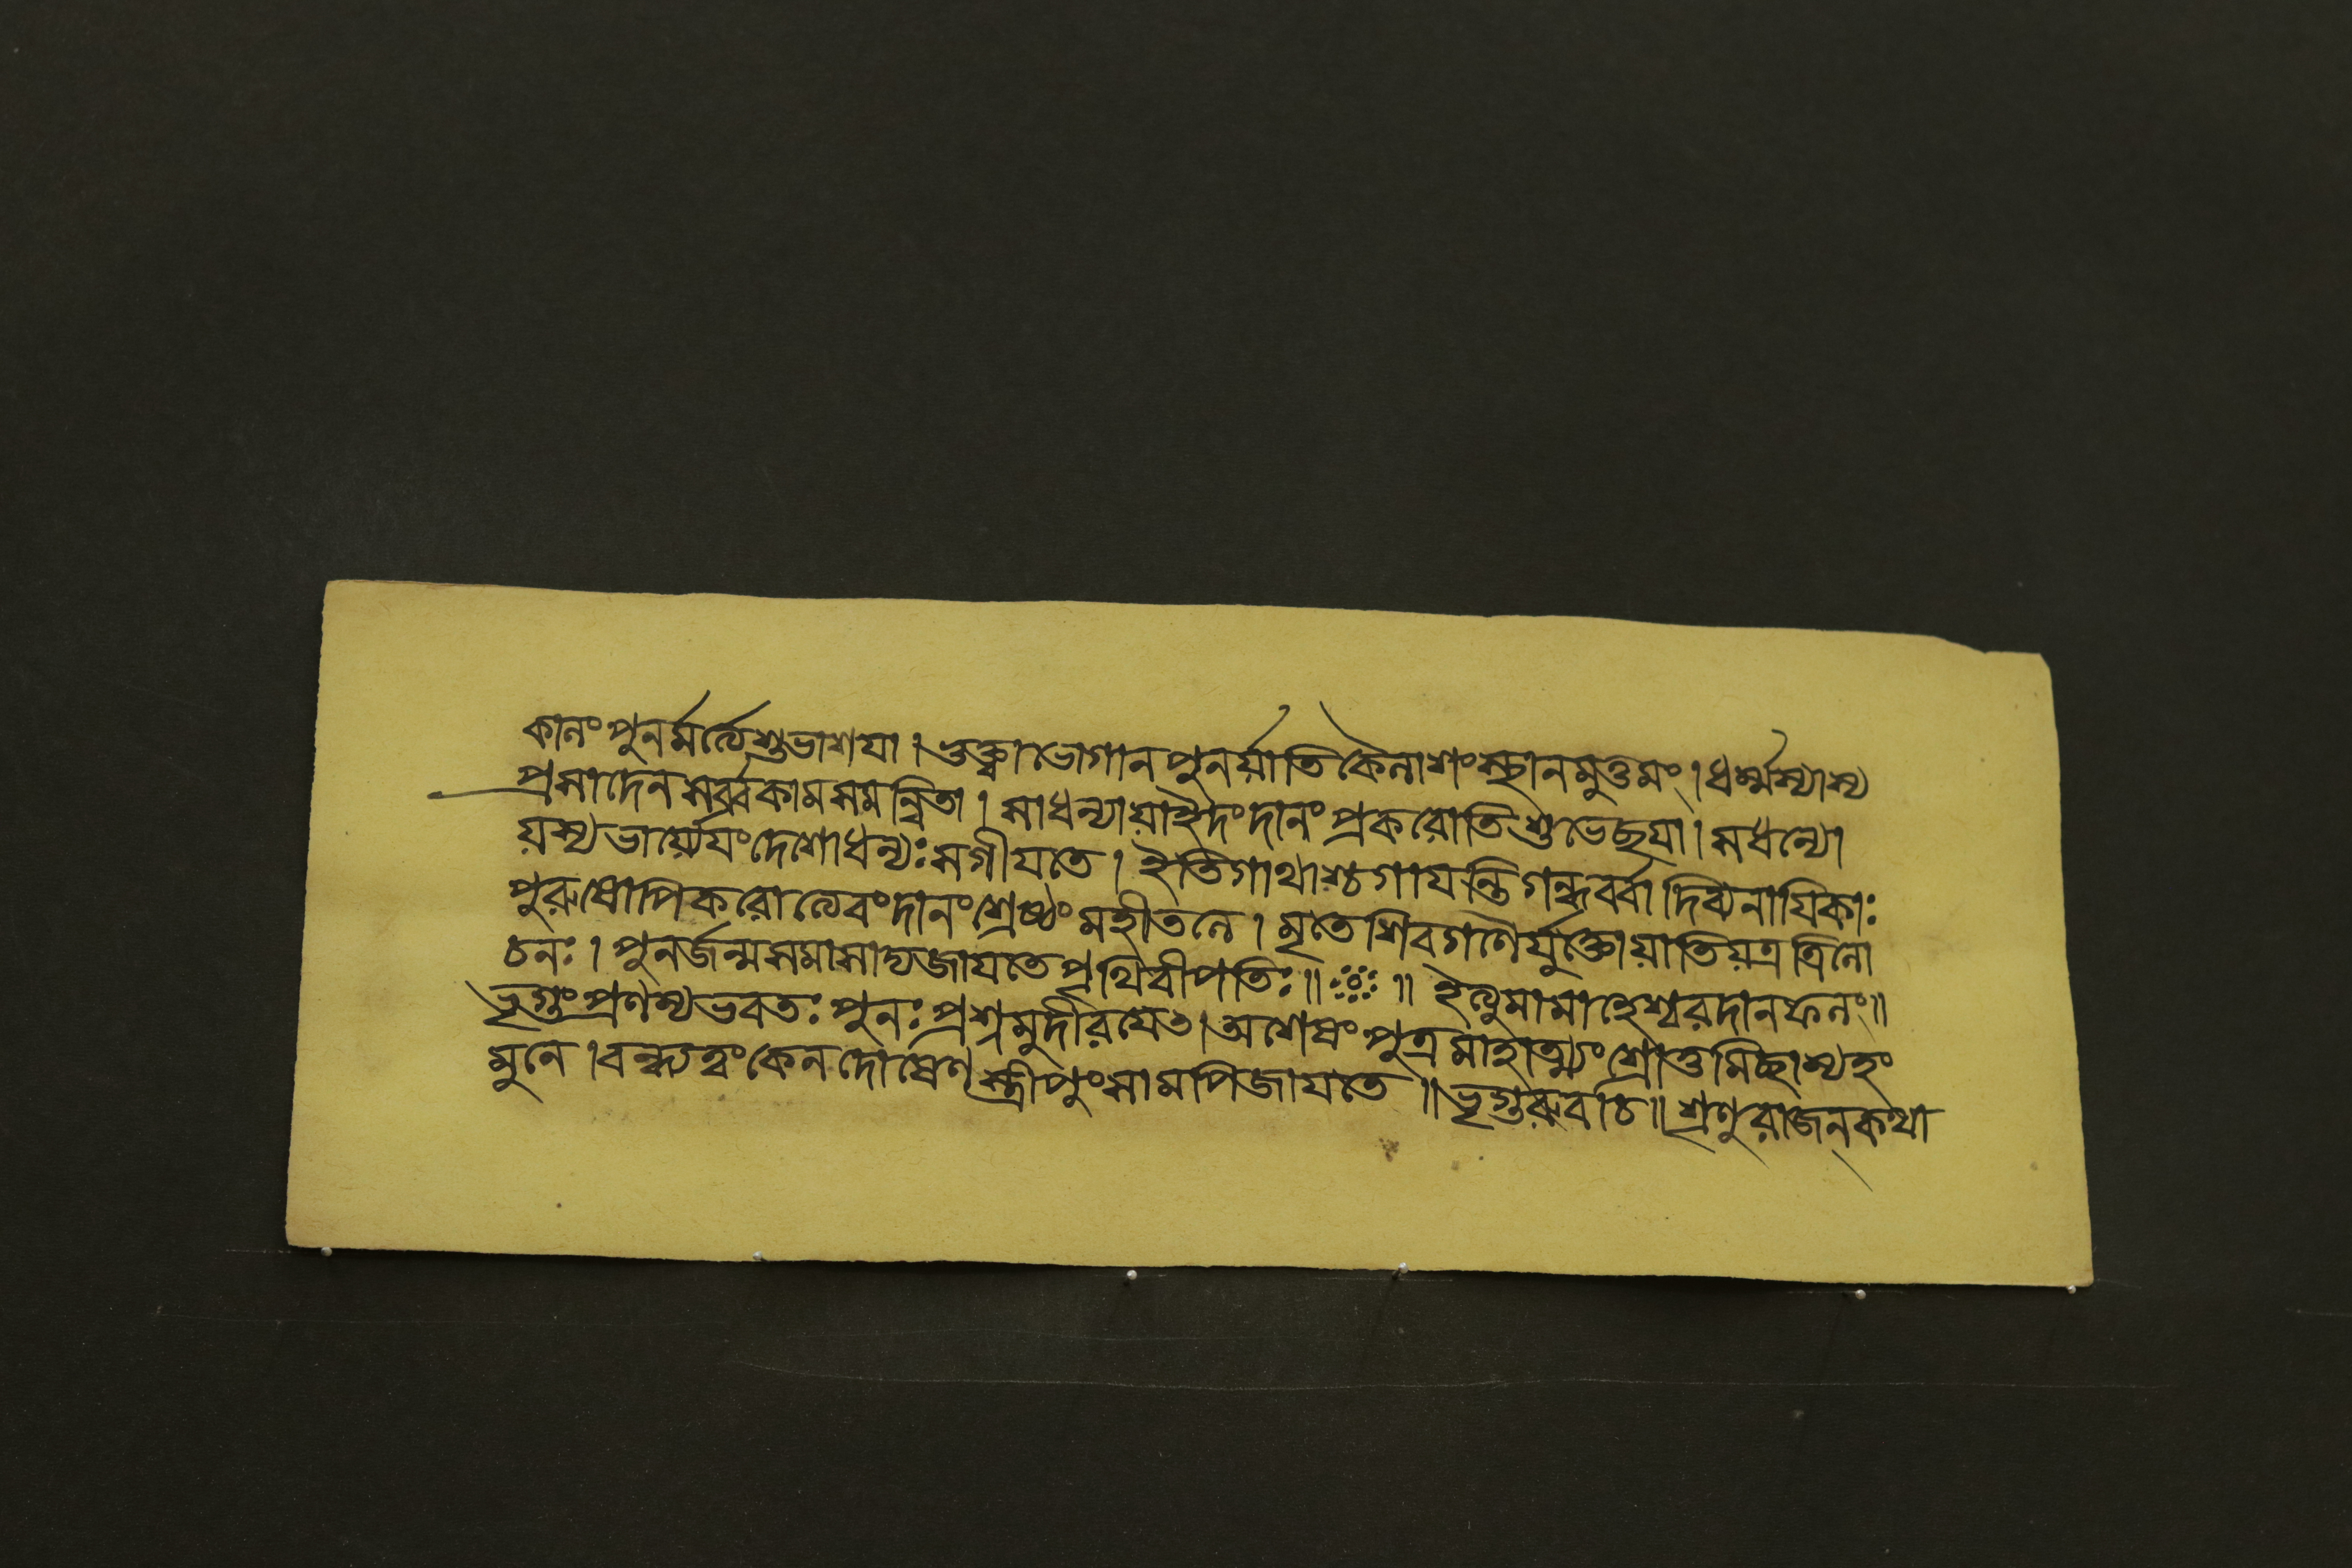 কালং পুনর্মর্ত্যে শুভাশযা । ভুক্ত্বা ভোগান পুনর্য়াতি কৈলাশং স্থানমুত্তমং । ধর্ম্মস্যাস্য
প্রসাদেন সর্ব্বকামসমন্বিতা । সা ধন্যা য়া ইদং দানং প্রকরোতি শুভেছযা । স ধন্যো
য়স্য ভার্য়্যেযং দেশো ধন্যঃ স গীযতে । ইতি গাথাশ্চ গাযন্তি গন্ধর্ব্বা দিব্যনাযিকাঃ
পুরুষোপি করোত্যেবং দানং শ্রেষ্ঠং মহীতলে । মৃতে শিবগণৈর্য়ুক্তো য়াতি য়ত্র ত্রিলো
চনঃ । পুনর্জন্ম সমাসাদ্য জাযতে পৃথিবীপতিঃ ॥ ॥ ইত্যুমামাহেশ্বরদানফলং ॥
ভৃগুং প্রণম্য ভবতঃ পুনঃ প্রশ্নমুদীরযেৎ । অশেষং পুত্রমাহাত্ম্যং শ্রোতুমিচ্ছাম্যহং
মুনে । বন্ধ্যত্বং কেন দোষেণ স্ত্রীপুংসামপি জাযতে ॥ ভৃগুরুবাচ ॥ শ্রণু রাজন্ কথা